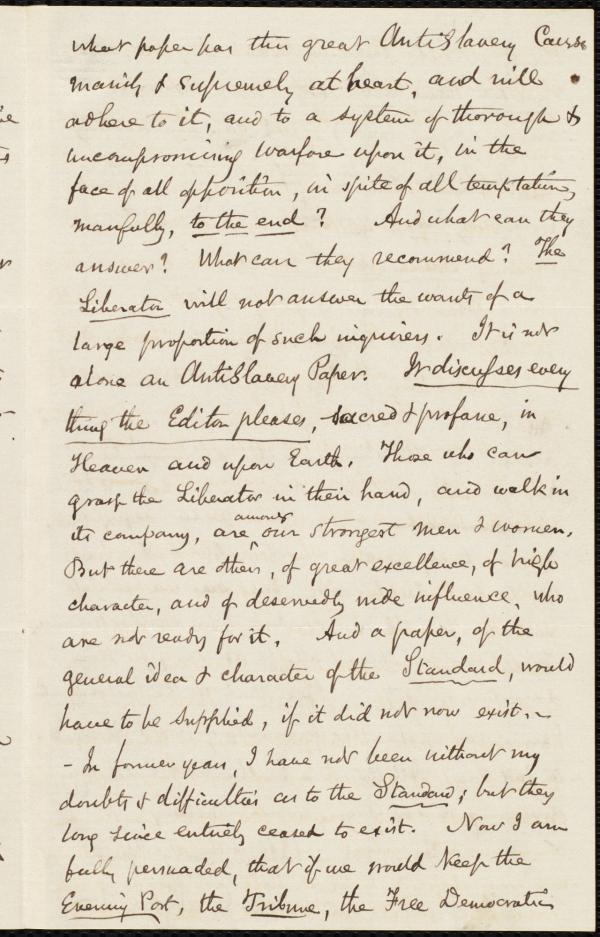 what paper has this great AntiSlavery Cause
mainly & supremely at heart, and will
adhere to it, and to a system of thorough &
uncompromising warfare upon it, in the
face of all opposition, in spite of all temptation,
manfully, to the end? And what can they
answer? What can they recommend? The
Liberator will not answer the wants of a
large proportion of such inquirers. It is not
alone an AntiSlavery Paper. It discusses every
thing the Editor pleases, sacred & profane, in
Heaven and upon Earth. Those who can
grasp the Liberator in their hand, and walk in
its company, are among our strongest men & women.
But there are others, of great excellence, of high
character, and of deservedly wide influence, who
are not ready for it. And a paper, of the
general idea & character of the Standard, would
have to be supplied, if it did not now exist.
- In former years, I have not been without my
doubts & difficulties as to the Standard; but they
long since entirely ceased to exist. Now I am
fully persuaded, that if we would keep the
Evening Post, the Tribune, the Free Democratic